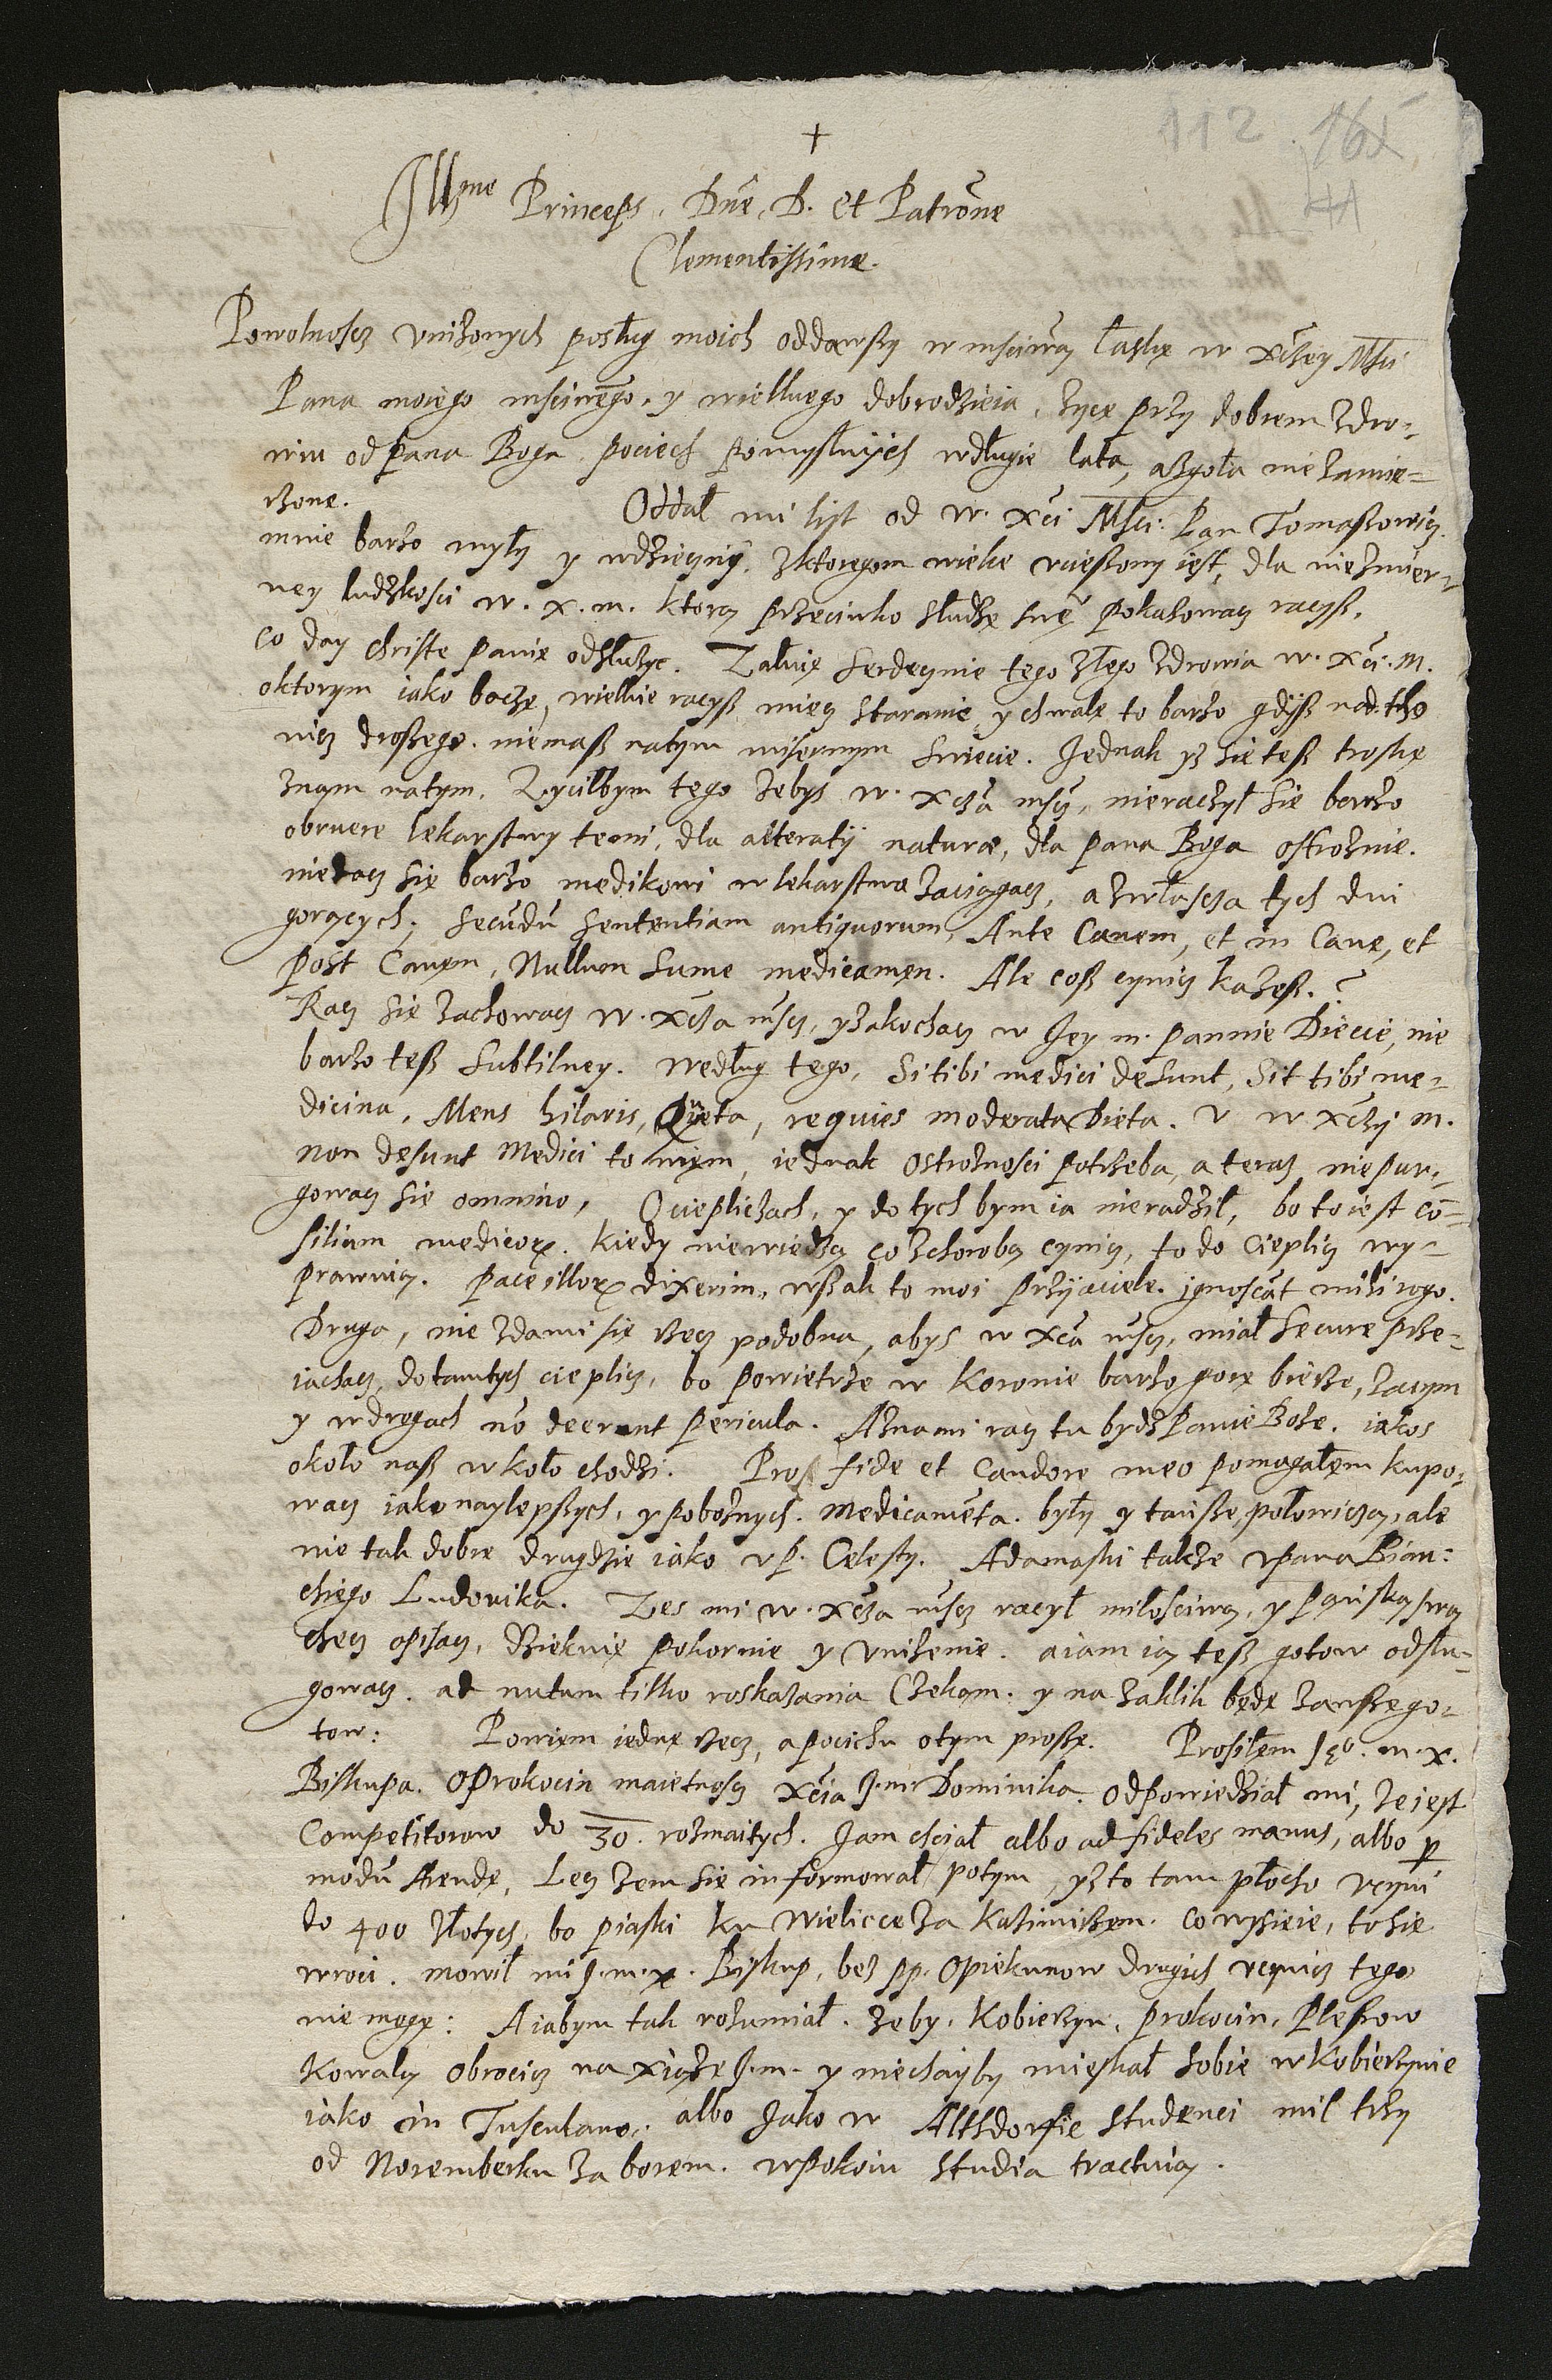 112 161
41
+
Illme Princeps. Dne, D. et Patrone
Clementissime.
Powolnoscz vnizonych poslug moich oddawszy w msciwą laskę w Xczey Msci
Pana moiego msciwego, y wielkiego dobrodzieia, życzę przy dobrem zdro-
wiu od Pana Boga pociech pomyslnych w dlugie lata, a zgola nie zamie-
rzone. Oddal mi list od w. xci Msci Pan Tomaszowicz
mnie barzo myly y wdzięczny, z ktoregom wielce vcieszony iest, dla niezmier-
ney ludzkosci w. x. m. ktorą przeciwko sludze swe pokazowacz raczysz.
co day Christe panie odsluzyc. Zaluię serdecznie tego zlego zdrowia w. xci. m.
o ktorym iako baczę, wielkie raczysz miecz staranie, y chwalę to barzo gdysz nad tho
nicz droszego. niemasz na tym misernym swiecie. Jednak ysz się tesz troskę
znąm na tym. Zycilbym tego zebys w. xcza mscz, nieraczyl się barzo
obruere lekarstwy temi, dla alteratij naturæ, dla pana Boga ostroznie.
niedacz się barzo medikowi w lekarstwa zaciągacz, a zwlascza tych dni
gorących; Secundu sententiam antiquorum, Ante Canem, et in Cane, et
post Canem, Nullum sume medicamen. Ale cosz czynicz kazesz.?
Racz się zachowacz w. xcza mscz, y zakochacz w Jey m. pannie Diecie, nie
barzo tesz subtilney. według tego, Si tibi medici desunt, sit tibi me-
dicina, Mens hilaris, Quieta, requies moderata Dieta. V w xczy m.
non desunt Medici to wiem, iednak ostroznosci potrzeba, a teraz niepur-
gowacz się omnino, O cieplicach, y do tych bym ia nieradzil, bo to iest co-
silium medicorz. kiedy niewiedzą co z chorobą czynicz, to do cieplicz wy-
prawuią. pace illorz dixerim, wszak to moi przyiaciele. ignoscat mihi rogo.
Druga, nie zda mi się rzecz podobna, abys w xca mscz, mial secure prze-
iachacz, do tamtych cieplicz, bo powietrze w koronie barzo gorę bierze, zaczym
y w drogach no deerunt pericula. A z nami racz tu bydz Panie Boze. iakos
około nasz w koło chodzi. Pros fide et candore meo pomagalem kupo-
wacz iako naylepszych, y poboznych. medicamenta. byly y tansze, polowiczą, ale
nie tak dobre drugdzie iako v p. Celesty. Adamaszki takze v pana Bian-
chiego Ludovika. Zes mi w. xcza mscz raczyl milosciwą, y Pańską swą
checz opisacz, dziekuię pokornie y vnizenie. a iam ią tesz gotow odslu-
gowacz. ad nutum tilko roskazania czekąm. y na zaklik będę zawsze go-
tow: Powiem iednę rzecz, a pocichu o tym proszę. Prosilem Jęo. m. x.
Biskupa. o Prokocin maietnoscz xcia J. m. Dominika. odpowiedzial mi, ze iest
Competitorow do 30. rozmaitych. Jam chcial albo ad fideles manus, albo p
modu Arendę, Lecz zem się informowal potym, ysz to tam plocho vczyni
do 400 zlotych, bo piaski ku Wieliczce za Kazimirzem. co wysieie, to się
wroci. mowil mi J. m. x. Biskup, bez pp. Opiekunow drugich vczynicz tego
nie mogę: A iabym tak rozumial. zeby, Kobierzyn, Prokocin, Pleszow
Kowaly obrocicz na xiążę J. m. y niechayby mieszkal sobie w Kobierzynie
iako in Tusculano. albo Jako w Althdorfie studenci mil trzy
od Noremberku za borem. w pokoiu studia tractuią.